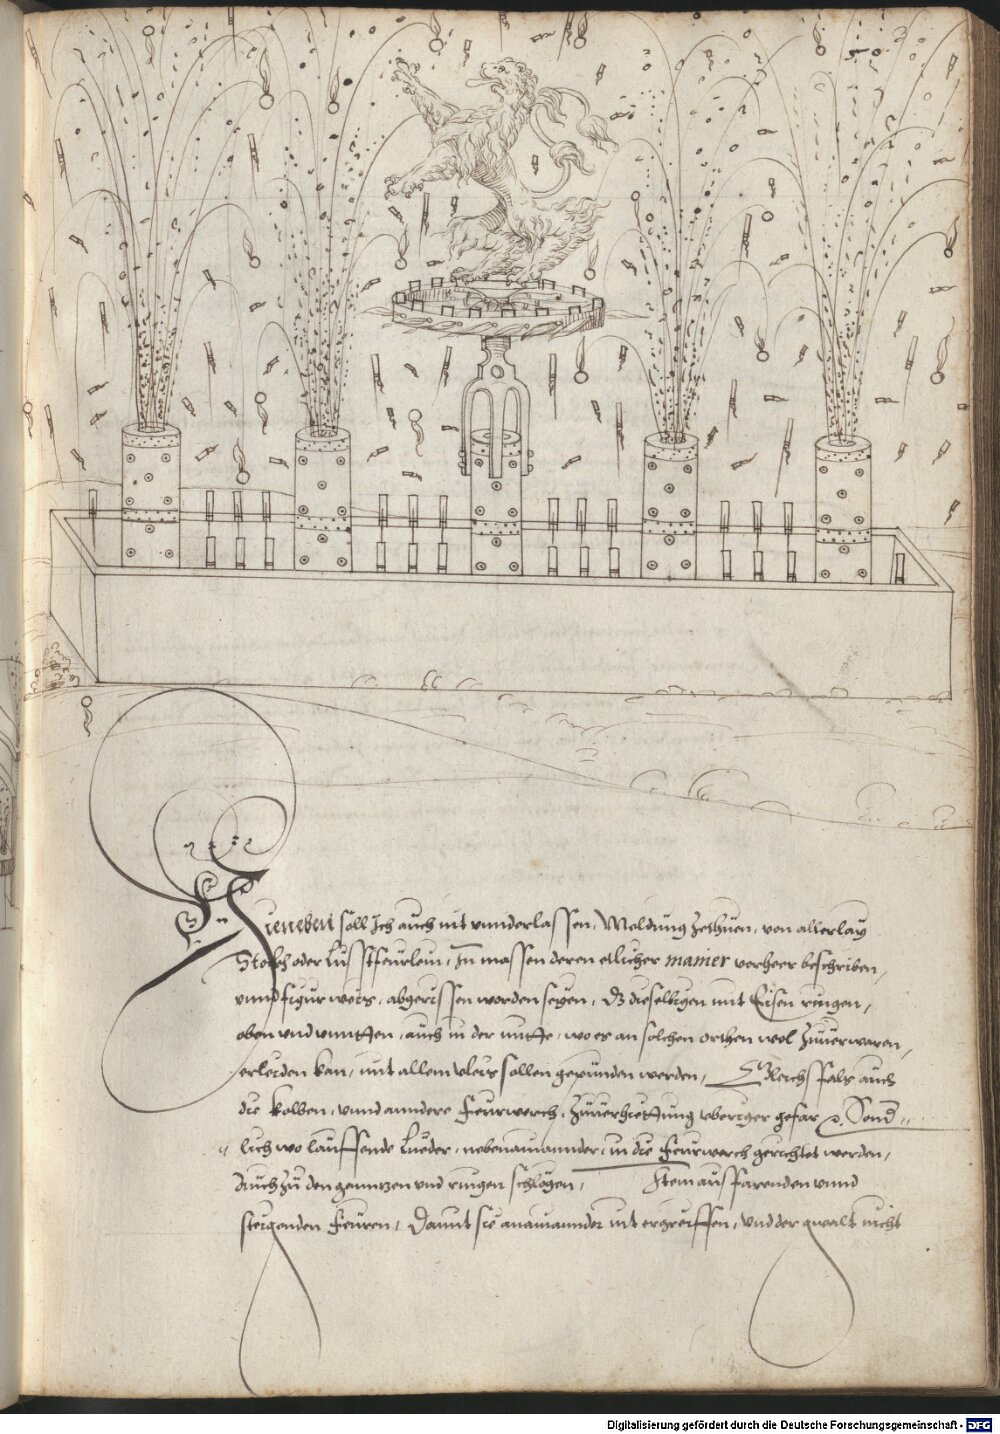 Hieneben soll Ich auch nit vnnderlassen, Meldung Zethuen, von allerlay
Stöckh oder Lustfeurlein, In massen deren etlicher manier vorheer beschriben,
vnnd figur weis, abgerissen worden seyen, Dz dieselbigen mit Eisen ringen,
oben vnd vnntten, auch in der mitte, wo es an solchen orthen wol Zuuerwaren,
erleiden kan, mit allem vleis sollen gepunden werden, Gleichsfals auch
die kolben, vnnd anndere Feurwerch, Zuuerhiettung weriger gefar Sond,,
,, lich wo lauffende Lueder, nebenainannder, in die Feurwerch gerichtet werden,
Auch Zu den gemainen vnd ringen schlögen, Item ausfarenden vnnd
steigenden Feuren, Damit sie anainannder nit ergreiffen, vnd der gwalt nicht
Digitalisierung gefördert durch die Deutsche Forschungsgemeinschaft - DFG